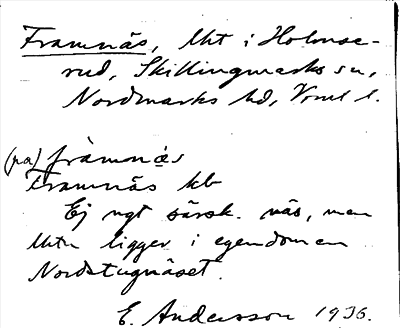 Framnäs, lht i Holmse-
rud, Skillingmarks sn,
Nordmarks hd, Vrml l.
(pa) fràmnä́s
Framnäs kb
Ej ngt särsk. näs, men
lhtn ligger i egendomen
Nordstugnäset.
E. Andersson 1936.